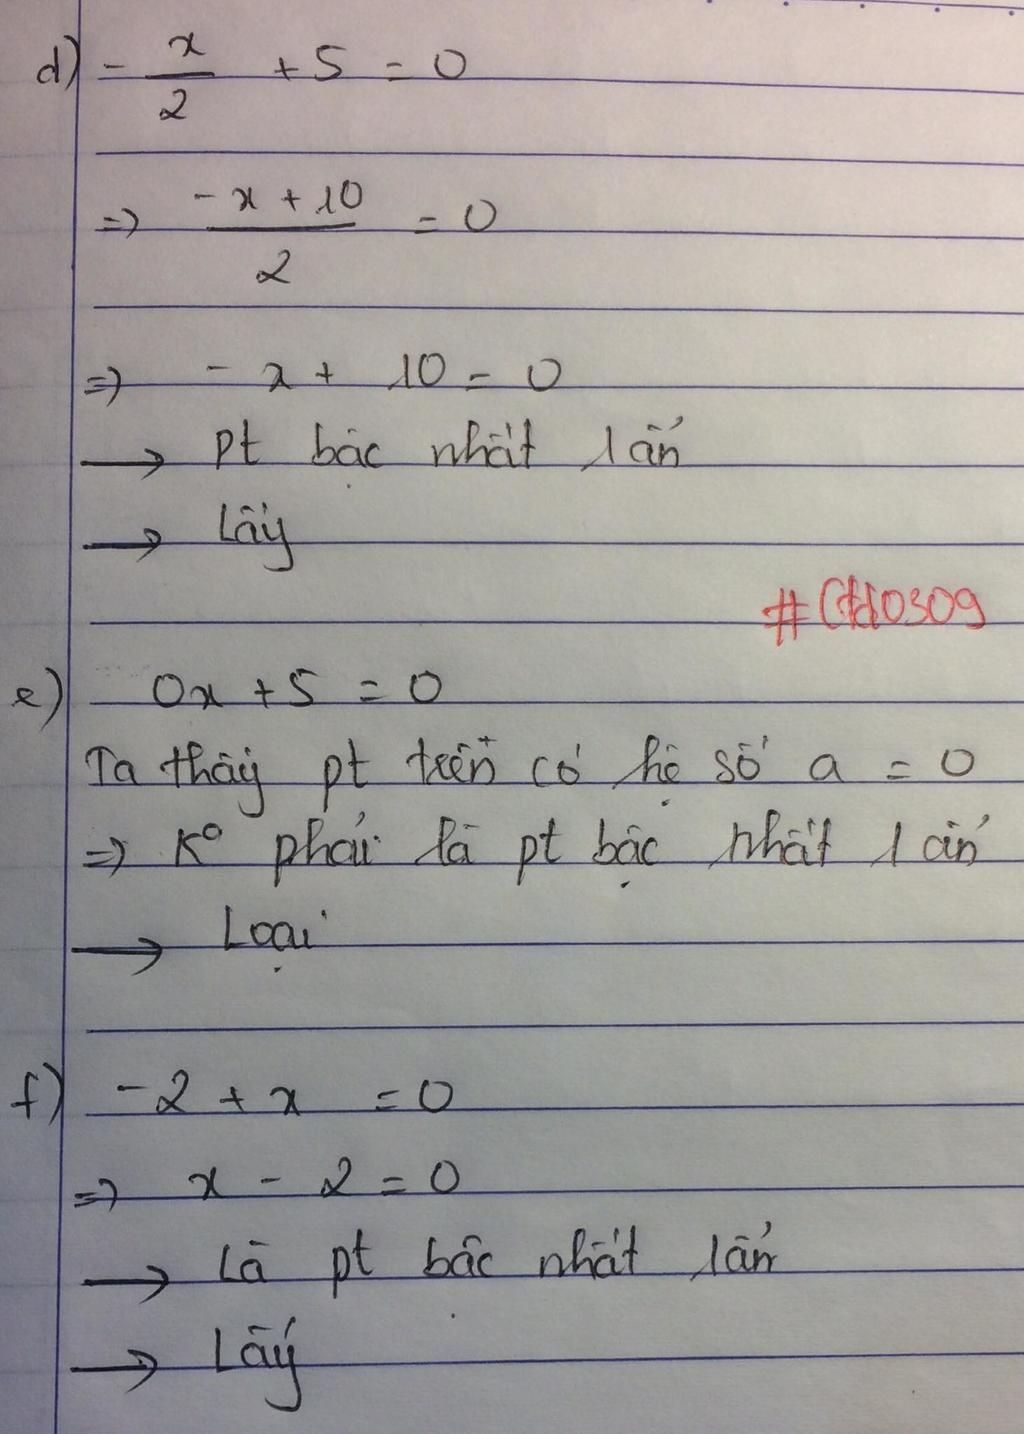 d) - x/2 + 5 = 0
=> (-x + 10)/2 = 0
=> - x + 10 = 0
→ pt bậc nhất 1 ẩn
→ Lấy
#CTH0309
e) 0x + 5 = 0
Ta thấy pt trên có hệ số a = 0
=> K° phải là pt bậc nhất 1 ẩn
→ Loại
f) -2 + x = 0
=> x - 2 = 0
→ Là pt bậc nhất 1 ẩn
→ Lấy